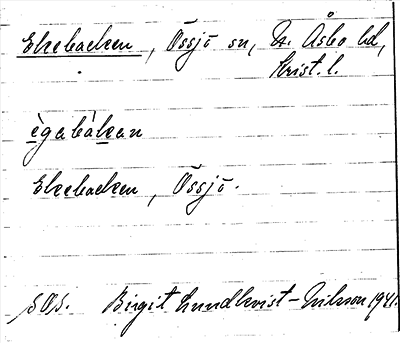 Ekebacken, Össjö sn, N. Åsbo hd,
Krist. l.
ègabàkan
Ekebacken, Össjö.
SOS. Birgit Lundkvist-Nilsson 1941.